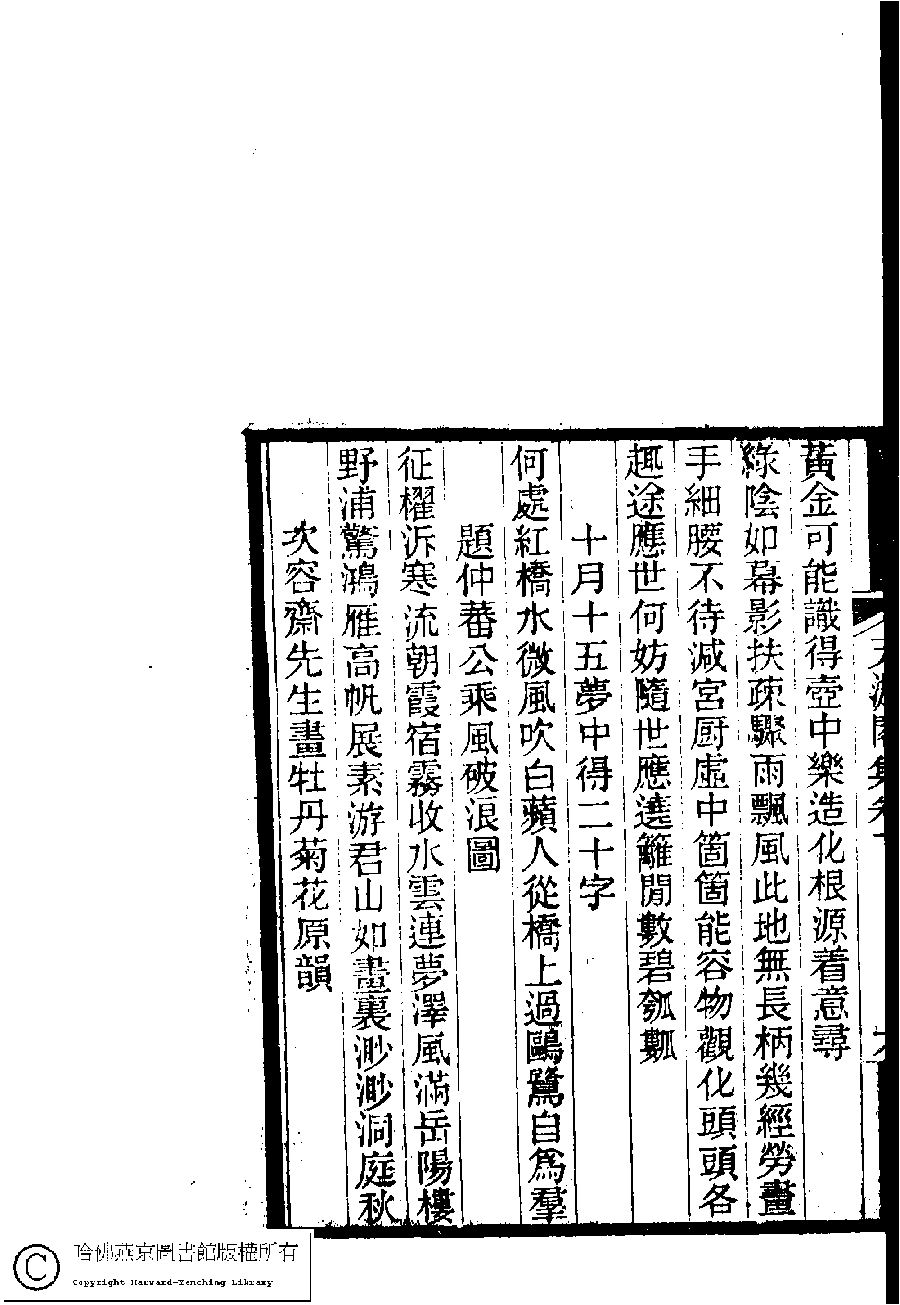 黃金可能識得壺中樂造化根源着意尋
綠陰如幕影扶疎驟雨飄風此地無長柄幾經勞畫
手細腰不待減宮厨虛中箇箇能容物觀化頭頭各
趣途應世何妨隨世應遶籬閒數碧瓠瓤
十月十五夢中得二十字
何處紅橋水微風吹白蘋人從橋上過鷗鷺自爲羣
題仲蕃公乘風破浪圖
征櫂泝寒流朝霞宿霧收水雲連夢澤風滿岳陽樓
野浦驚鴻雁高帆展素游君山如畫裏渺渺洞庭秋
次容齋先生畫牡丹菊花原韻
哈佛燕京圖書館版權所有
Copyright Harvard-Yenching Library